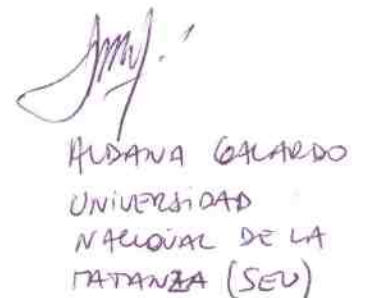 ALDANA GALARDO
UNIVERSIDAD
NACIONAL DE LA
MATANZA (SEU)